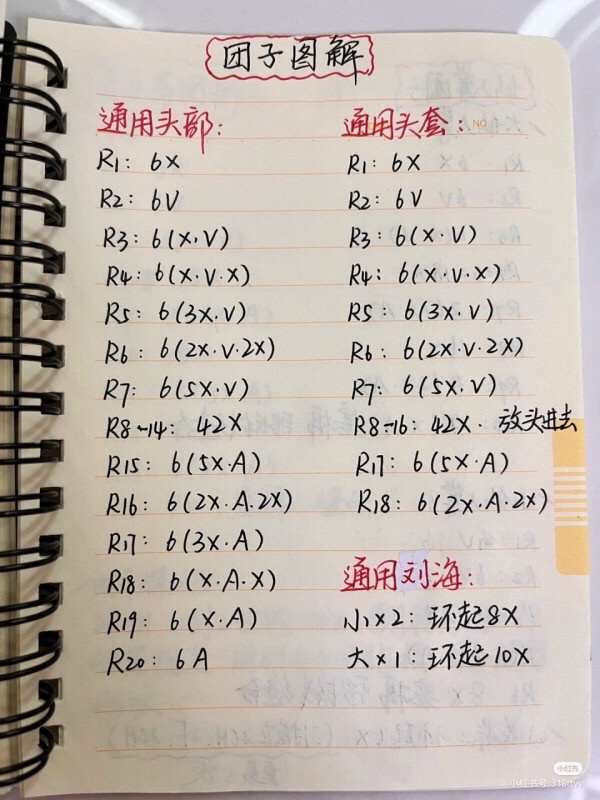 团子图解
通用头部：
R1: 6X
R2: 6V
R3: 6(X,V)
R4: 6(X·V·X)
R5: 6(3X·V)
R6: 6(2X·V·2X)
R7: 6(5X·V)
R8~14: 42X
R15: 6(5X·A)
R16: 6(2X·A·2X)
R17: 6(3X·A)
R18: 6(X·A·X)
R19: 6(X·A)
R20: 6A
通用头套：
NO
R1: 6X
R2: 6V
R3: 6(X·V)
R4: 6(X·V·X)
R5: 6(3X·V)
R6: 6(2X·V·2X)
R7: 6(5X·V)
R8~16: 42X. 放头进去
R17: 6(5X·A)
R18: 6(2X·A·2X)
通用刘海：
小×2: 环起8X
大×1: 环起10X
小红书